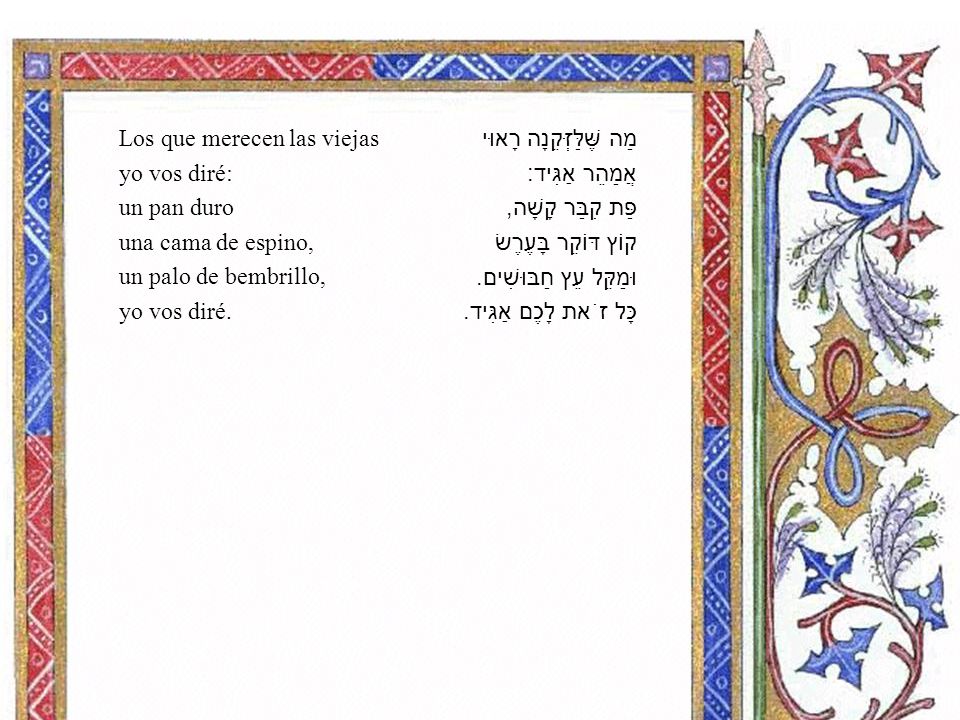 Los que merecen las viejas
yo vos diré:
un pan duro
una cama de espino,
un palo de bembrillo,
yo vos diré.
מַה שֶּׁלַּזְּקֵנָה רָאוּי
אֲמַהֵר אַגִּיד:
פַּת קִבַּר קָשָׁה,
קוֹץ דּוֹקֵר בָּעֶרֶשׂ
וּמַקֵּל עֵץ חַבּוּשִׁים.
כָּל זֹאת לָכֶם אַגִּיד.